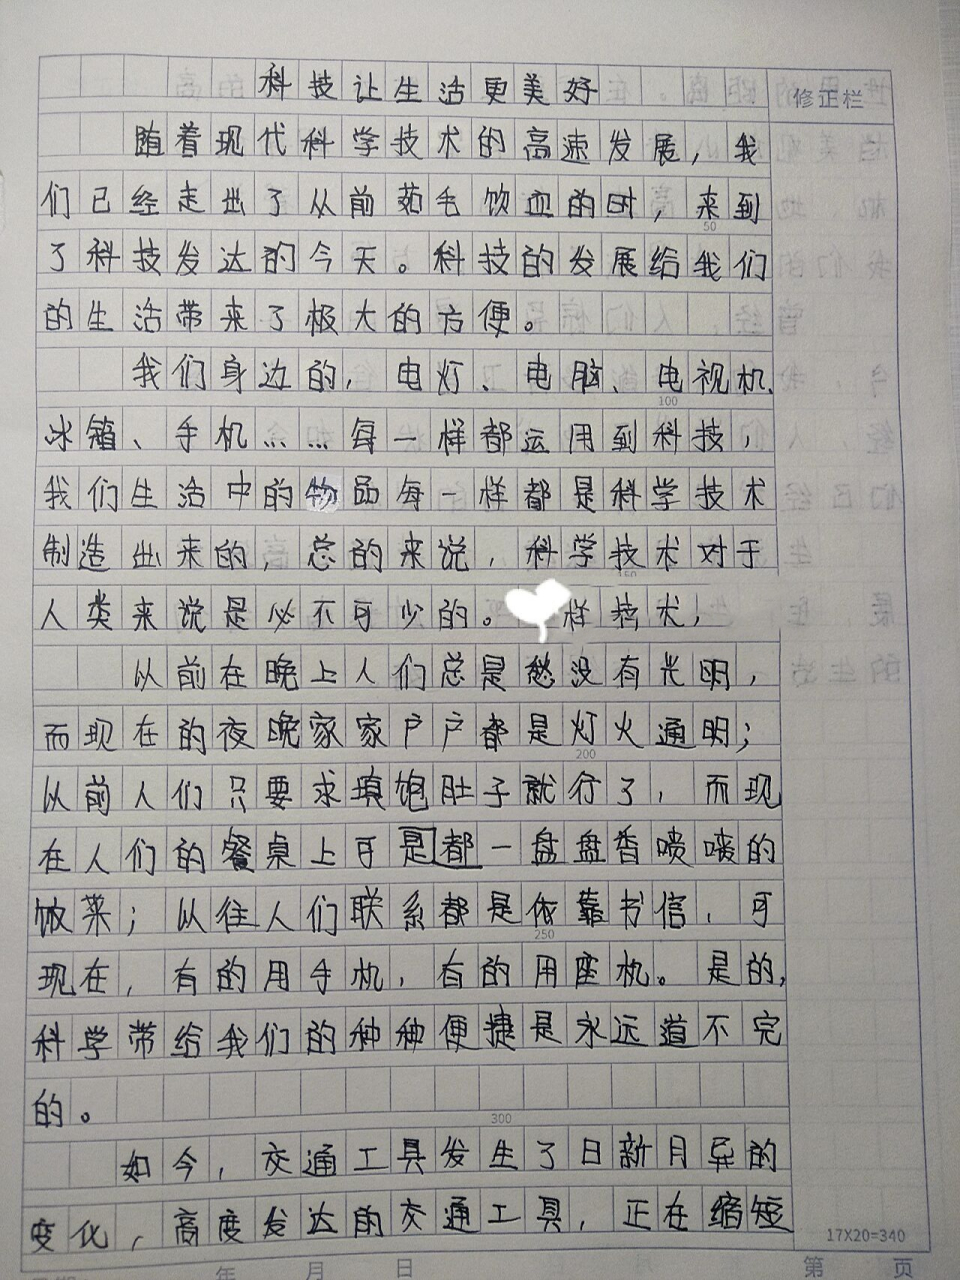 科技让生活更美好
修正栏
随着现代科学技术的高速发展，我
们已经走出了从前茹毛饮血的时，来到
50
了科技发达的今天。科技的发展给我们
的生活带来了极大的方便。
我们身边的，电灯、电脑、电视机、
100
冰箱、手机……每一样都运用到科技，
我们生活中的物品每一样都是科学技术
制造出来的，总的来说，科学技术对于
150
人类来说是必不可少的。样
以前在晚上人们总是愁没有光明，
而现在的夜晚家家户户都是灯火通明；
200
以前人们只要求填饱肚子就行了，而现
在人们的餐桌上可是都一盘盘香喷喷的
饭菜；以往人们联系都是依靠书信，可
250
现在，有的用手机，有的用座机。是的，
科学带给我们的种种便捷是永远道不完
的。
300
如今，交通工具发生了日新月异的
变化，高度发达的交通工具，正在缩短
17X20=340
年 月 日 第 页